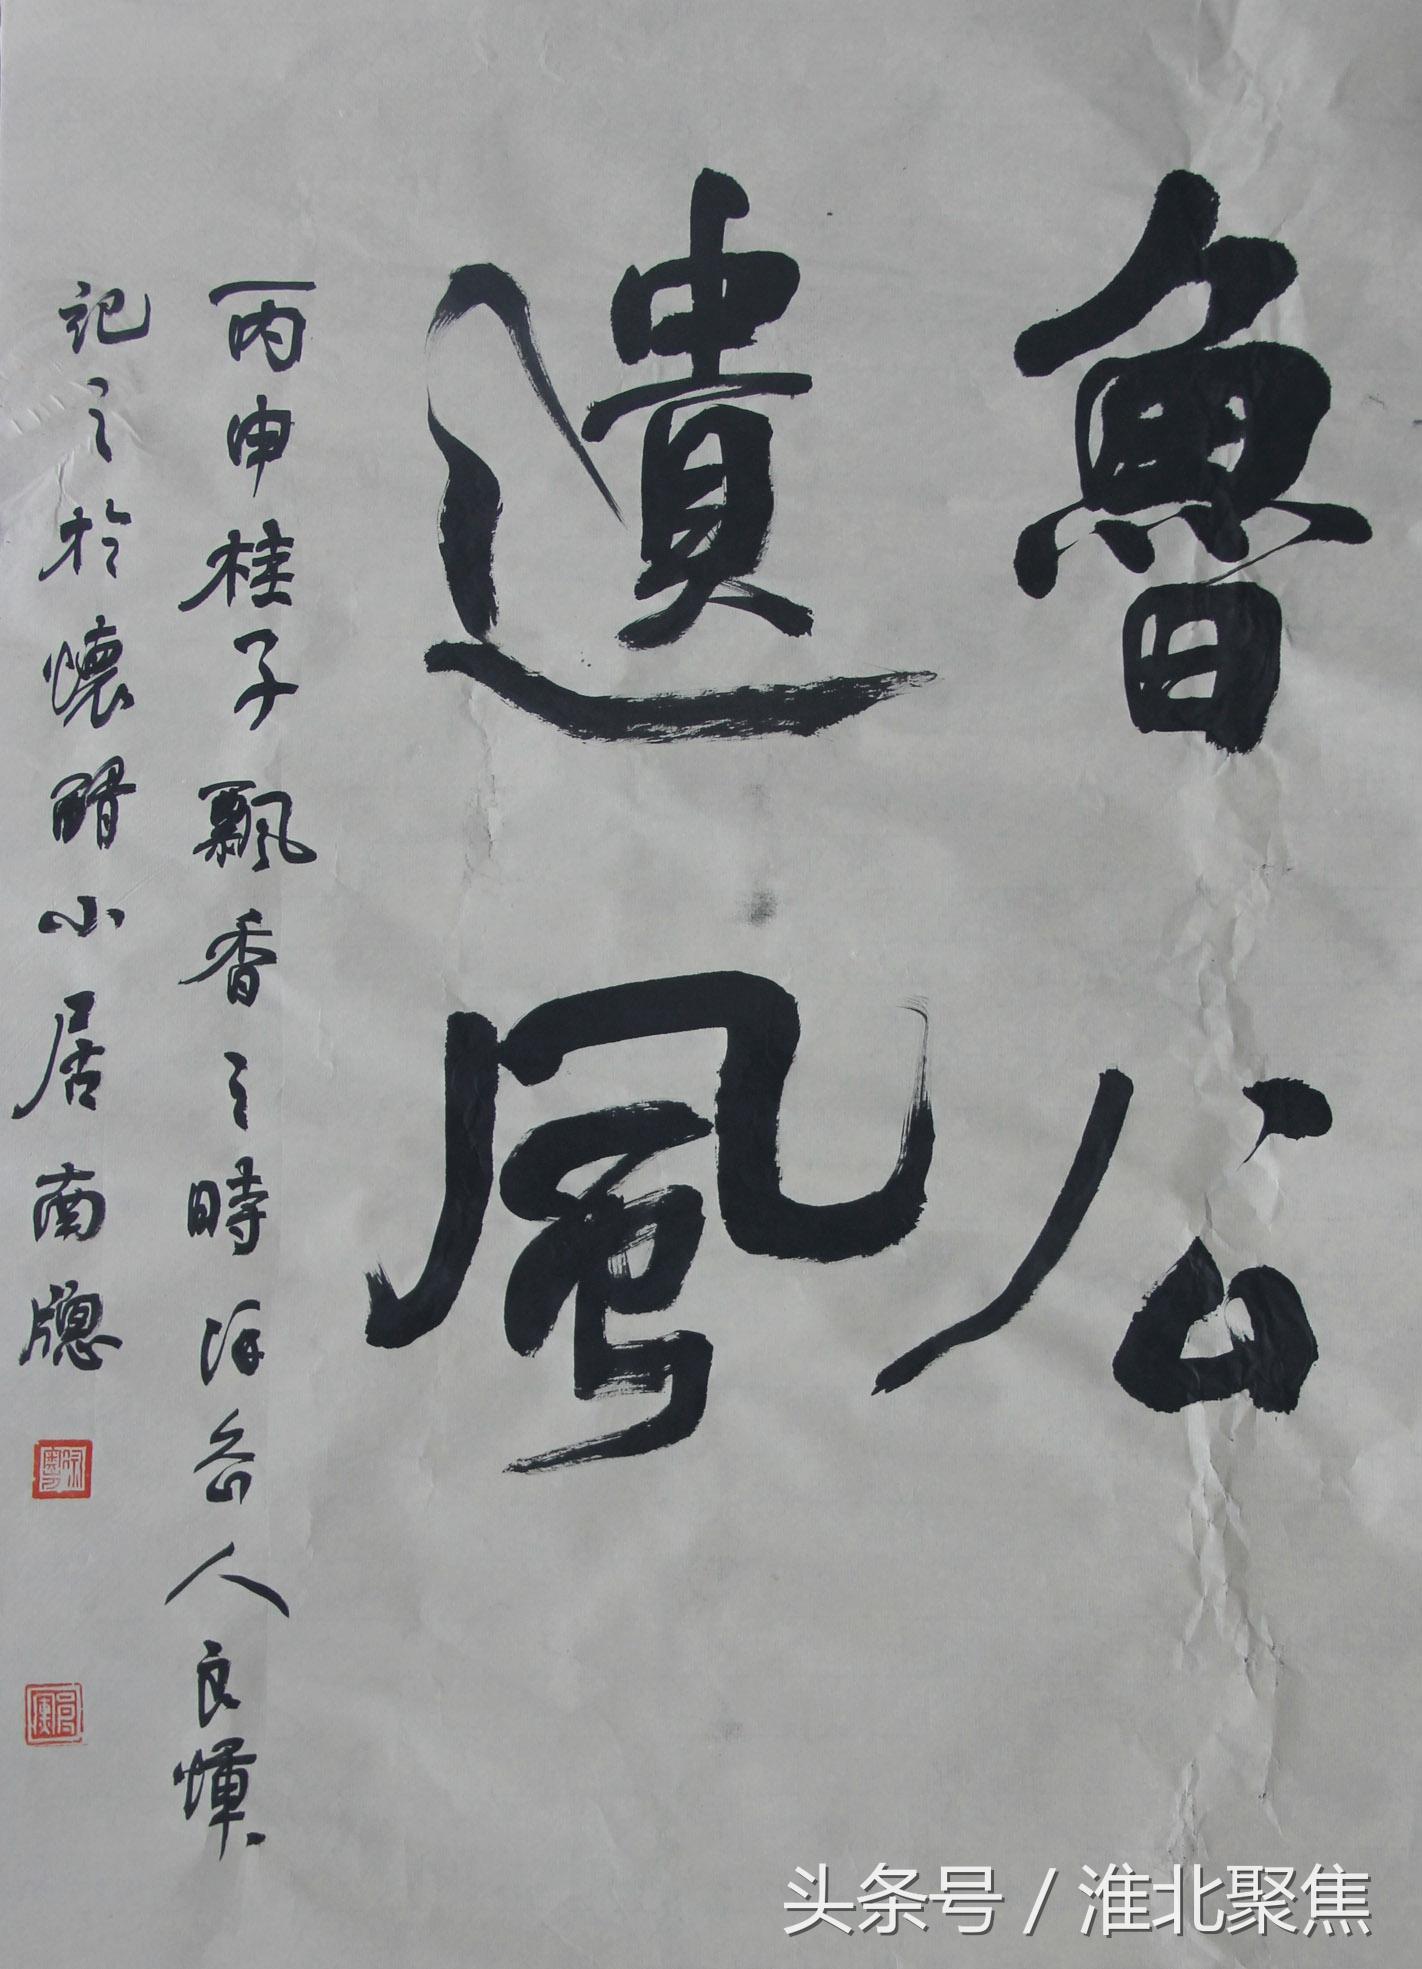 魯公
遺風
丙申桂子飄香之時谷人良煇
記之於懷小居南牕
头条号 / 淮北聚焦